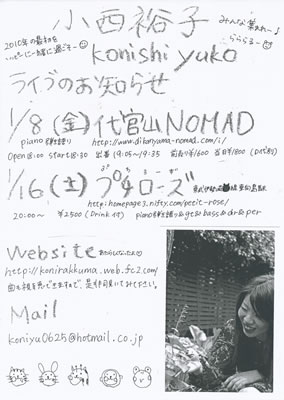 小西裕子
みんな集まれ〜♪
ららるる〜
2010年の最初を
一緒に過ごそ〜
konishi yuko
ライブのお知らせ
1/8(金)代官山NOMAD
piano弾き語り http://www.dikanyama-nomad.com/i/
Open18:00 start18:30 出番19:05〜9:35 前売り¥1600 当日¥1800 (D代別)
1/16(土)プチローズ
http://homepage3.nifty.com/petit-rose/
20:00〜 ¥2500 (Drink付) piano弾き語り&gt&bass&dr&per
Website
http://konirakkuma.web.fc2.com/
Mail
koniyu0625@hotmail.co.jp